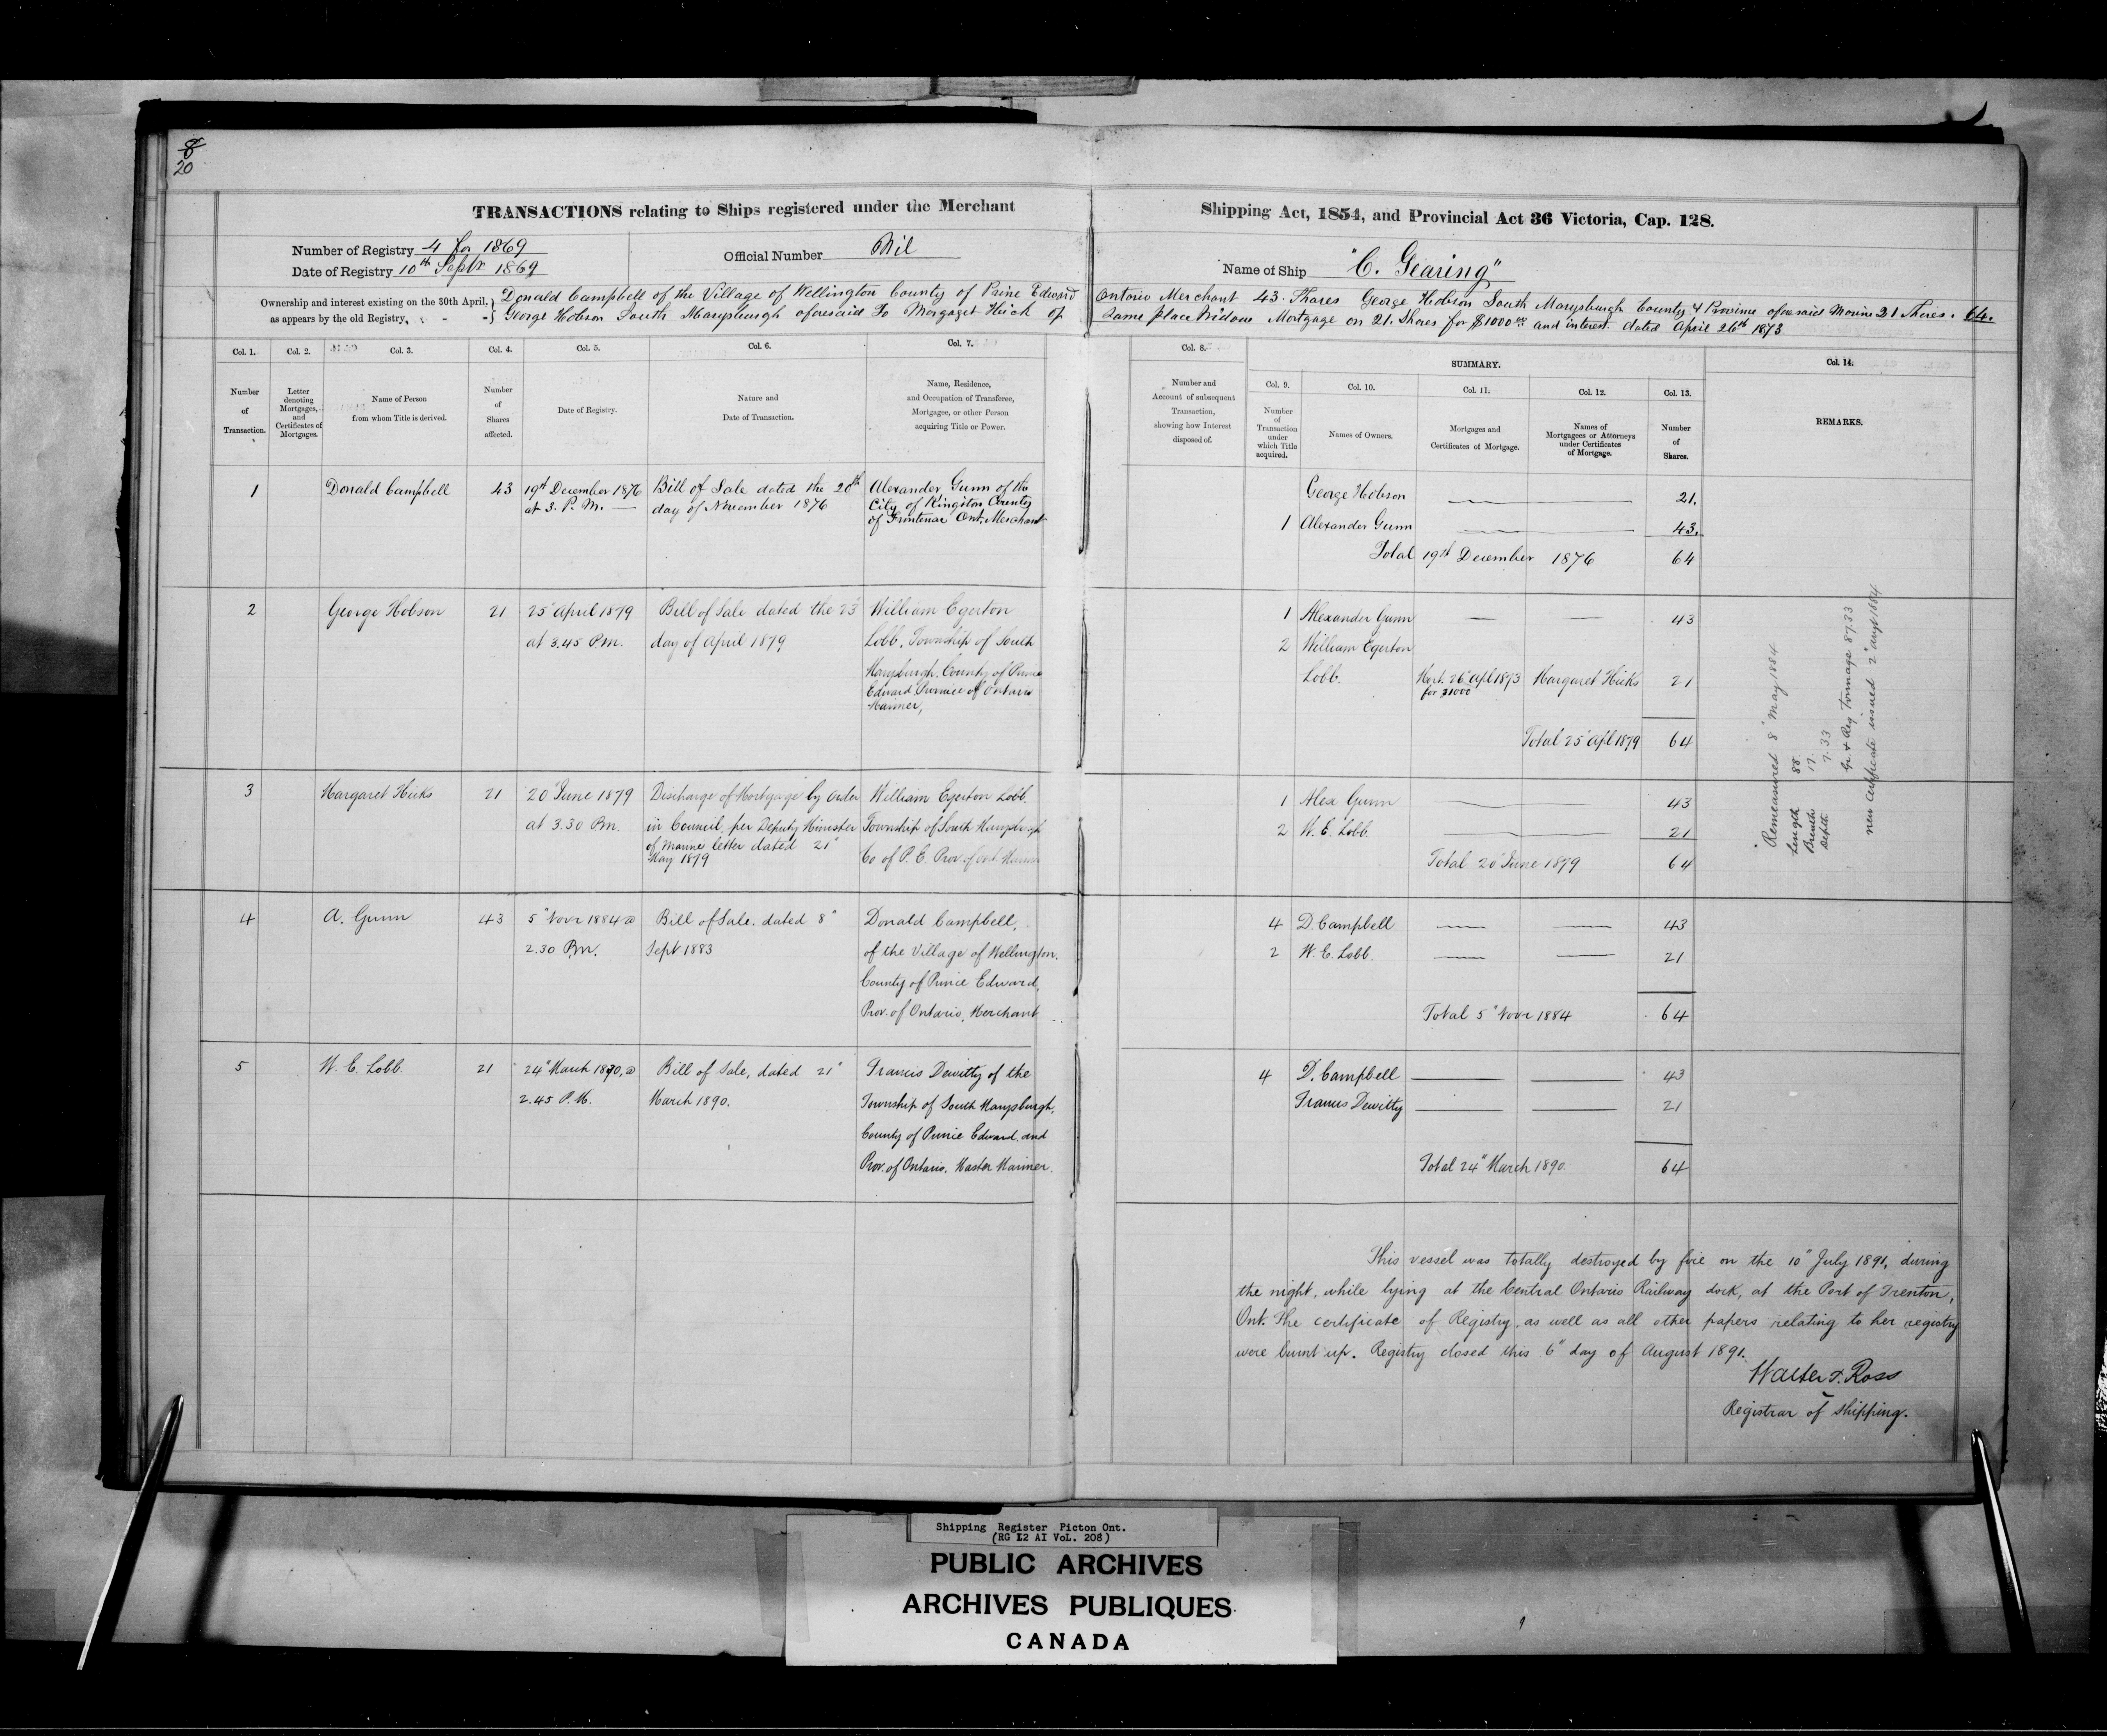 8
20
TRANSACTIONS relating to Ships registered under the Merchant
Number of Registry 4 for 1869
Date of Registry 10th Septr 1869
Official Number Nil
Ownership and interest existing on the 30th April,
as appears by the old Registry,
Donald Campbell of the Village of Wellington County of Prine Edward
George Hobson South Marysburgh aforesaid To Margaget Hick of
Shipping Act, 1854, and Provincial Act 36 Victoria, Cap. 128.
Name of Ship "C. Gearing"
Ontario Merchant 43 Shares George Hobson South Marysburgh County & Province aforesaid Marine 21 Shares. 64.
Same place Widow Mortgage on 21. Shares for $1000 and interest dated April 26th 1873
Col. 1. Col. 2. Col. 3. Col. 4. Col. 5. Col. 6. Col. 7.
Number of Transaction.
Letter denoting Mortgages, and Certificates of Mortgages.
Name of Person from whom Title is derived.
Number of Shares affected.
Date of Registry.
Nature and Date of Transaction.
Name, Residence, and Occupation of Transferee, Mortgagee, or other Person acquiring Title or Power.
Col. 8.
Number and Account of subsequent Transaction, showing how Interest disposed of.
SUMMARY.
Col. 9. Col. 10. Col. 11. Col. 12. Col. 13.
Number of Transaction under which Title acquired.
Names of Owners.
Mortgages and Certificates of Mortgage.
Names of Mortgagees or Attorneys under Certificates of Mortgage.
Number of Shares.
Col. 14.
REMARKS.
1 Donald Campbell 43 19th December 1876 Bill of Sale dated the 20th Alexander Gunn of the
at 3. P.M. day of November 1876 City of Kingston County
of Frontenac Ont. Merchant
George Hobson 21.
1 Alexander Gunn 43.
Total 19th December 1876 64
2 George Hobson 21 25" April 1879 Bill of Sale dated the 23 William Egerton
at 3.45 P.M. day of April 1879 Lobb, Township of South
Marysburgh. County of Prince
Edward Province of Ontario
Mariner,
1 Alexander Gunn 43
2 William Egerton
Lobb. Mort. 26" Apl 1873 Margaret Hicks 21
for $1000
Total 25" Apl 1879 64
3 Margaret Hicks 21 20" June 1879 Discharge of Mortgage by Order William Egerton Lobb.
at 3.30 P.M. in Council, per Deputy Minister Township of South Marysburgh
of Marine letter dated 21" Co of P. E. Prov of Ont. Marin
May 1879
1 Alex Gunn 43
2 W. E. Lobb. 21
Total 20" June 1879 64
Remeasured 8" May 1884
Length 88.
Breadth 17.
Depth 7.33
Gr. & Reg Tonnage 87.33
new certificate issued 2" augt 1884
4 A. Gunn 43 5" Novr 1884 @ Bill of Sale. dated 8" Donald Campbell,
2.30 P.M. Sept 1883 of the Village of Wellington.
County of Prince Edward,
Prov. of Ontario, Merchant
4 D. Campbell 43
2 W. E. Lobb. 21
Total 5" Novr 1884 64
5 W. E. Lobb 21 24" March 1890, @ Bill of Sale, dated 21" Francis Dewitty of the
2.45 P.M. March 1890. Township of South Marysburgh,
County of Prince Edward and
Prov. of Ontario. Master Mariner.
4 D. Campbell 43
Francis Dewitty 21
Total 24" March 1890. 64
This vessel was totally destroyed by fire on the 10" July 1891, during
the night, while lying at the Central Ontario Railway dock, at the Port of Trenton,
Ont. The certificate of Registry, as well as all other papers relating to her registry
were burnt up. Registry closed this 6" day of August 1891.
Walter T. Ross
Registrar of Shipping.
Shipping Register Picton Ont.
(RG 12 AI VoL. 208)
PUBLIC ARCHIVES
ARCHIVES PUBLIQUES
CANADA